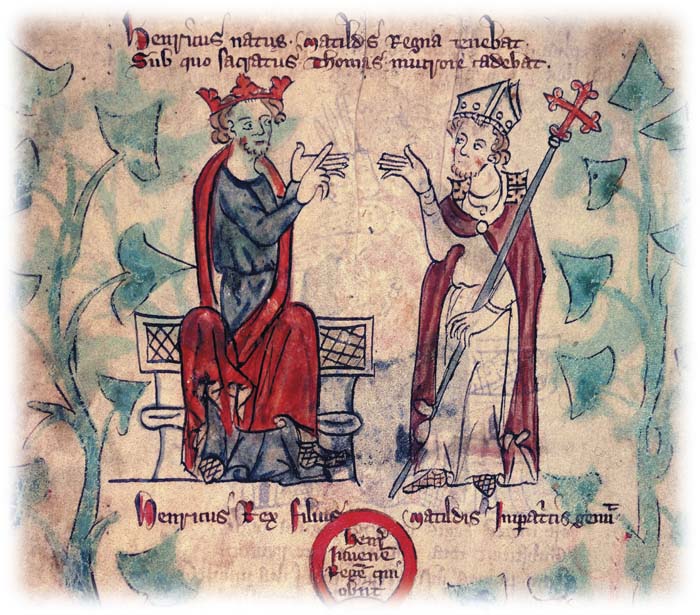 Henricus natus Matildis Regna tenebat.
Sub quo sacratus Thomas mucrone cadebat.
Henricus Rex filius Matildis Imperatricis
Henr
Iuvene
Rege qui
obiit